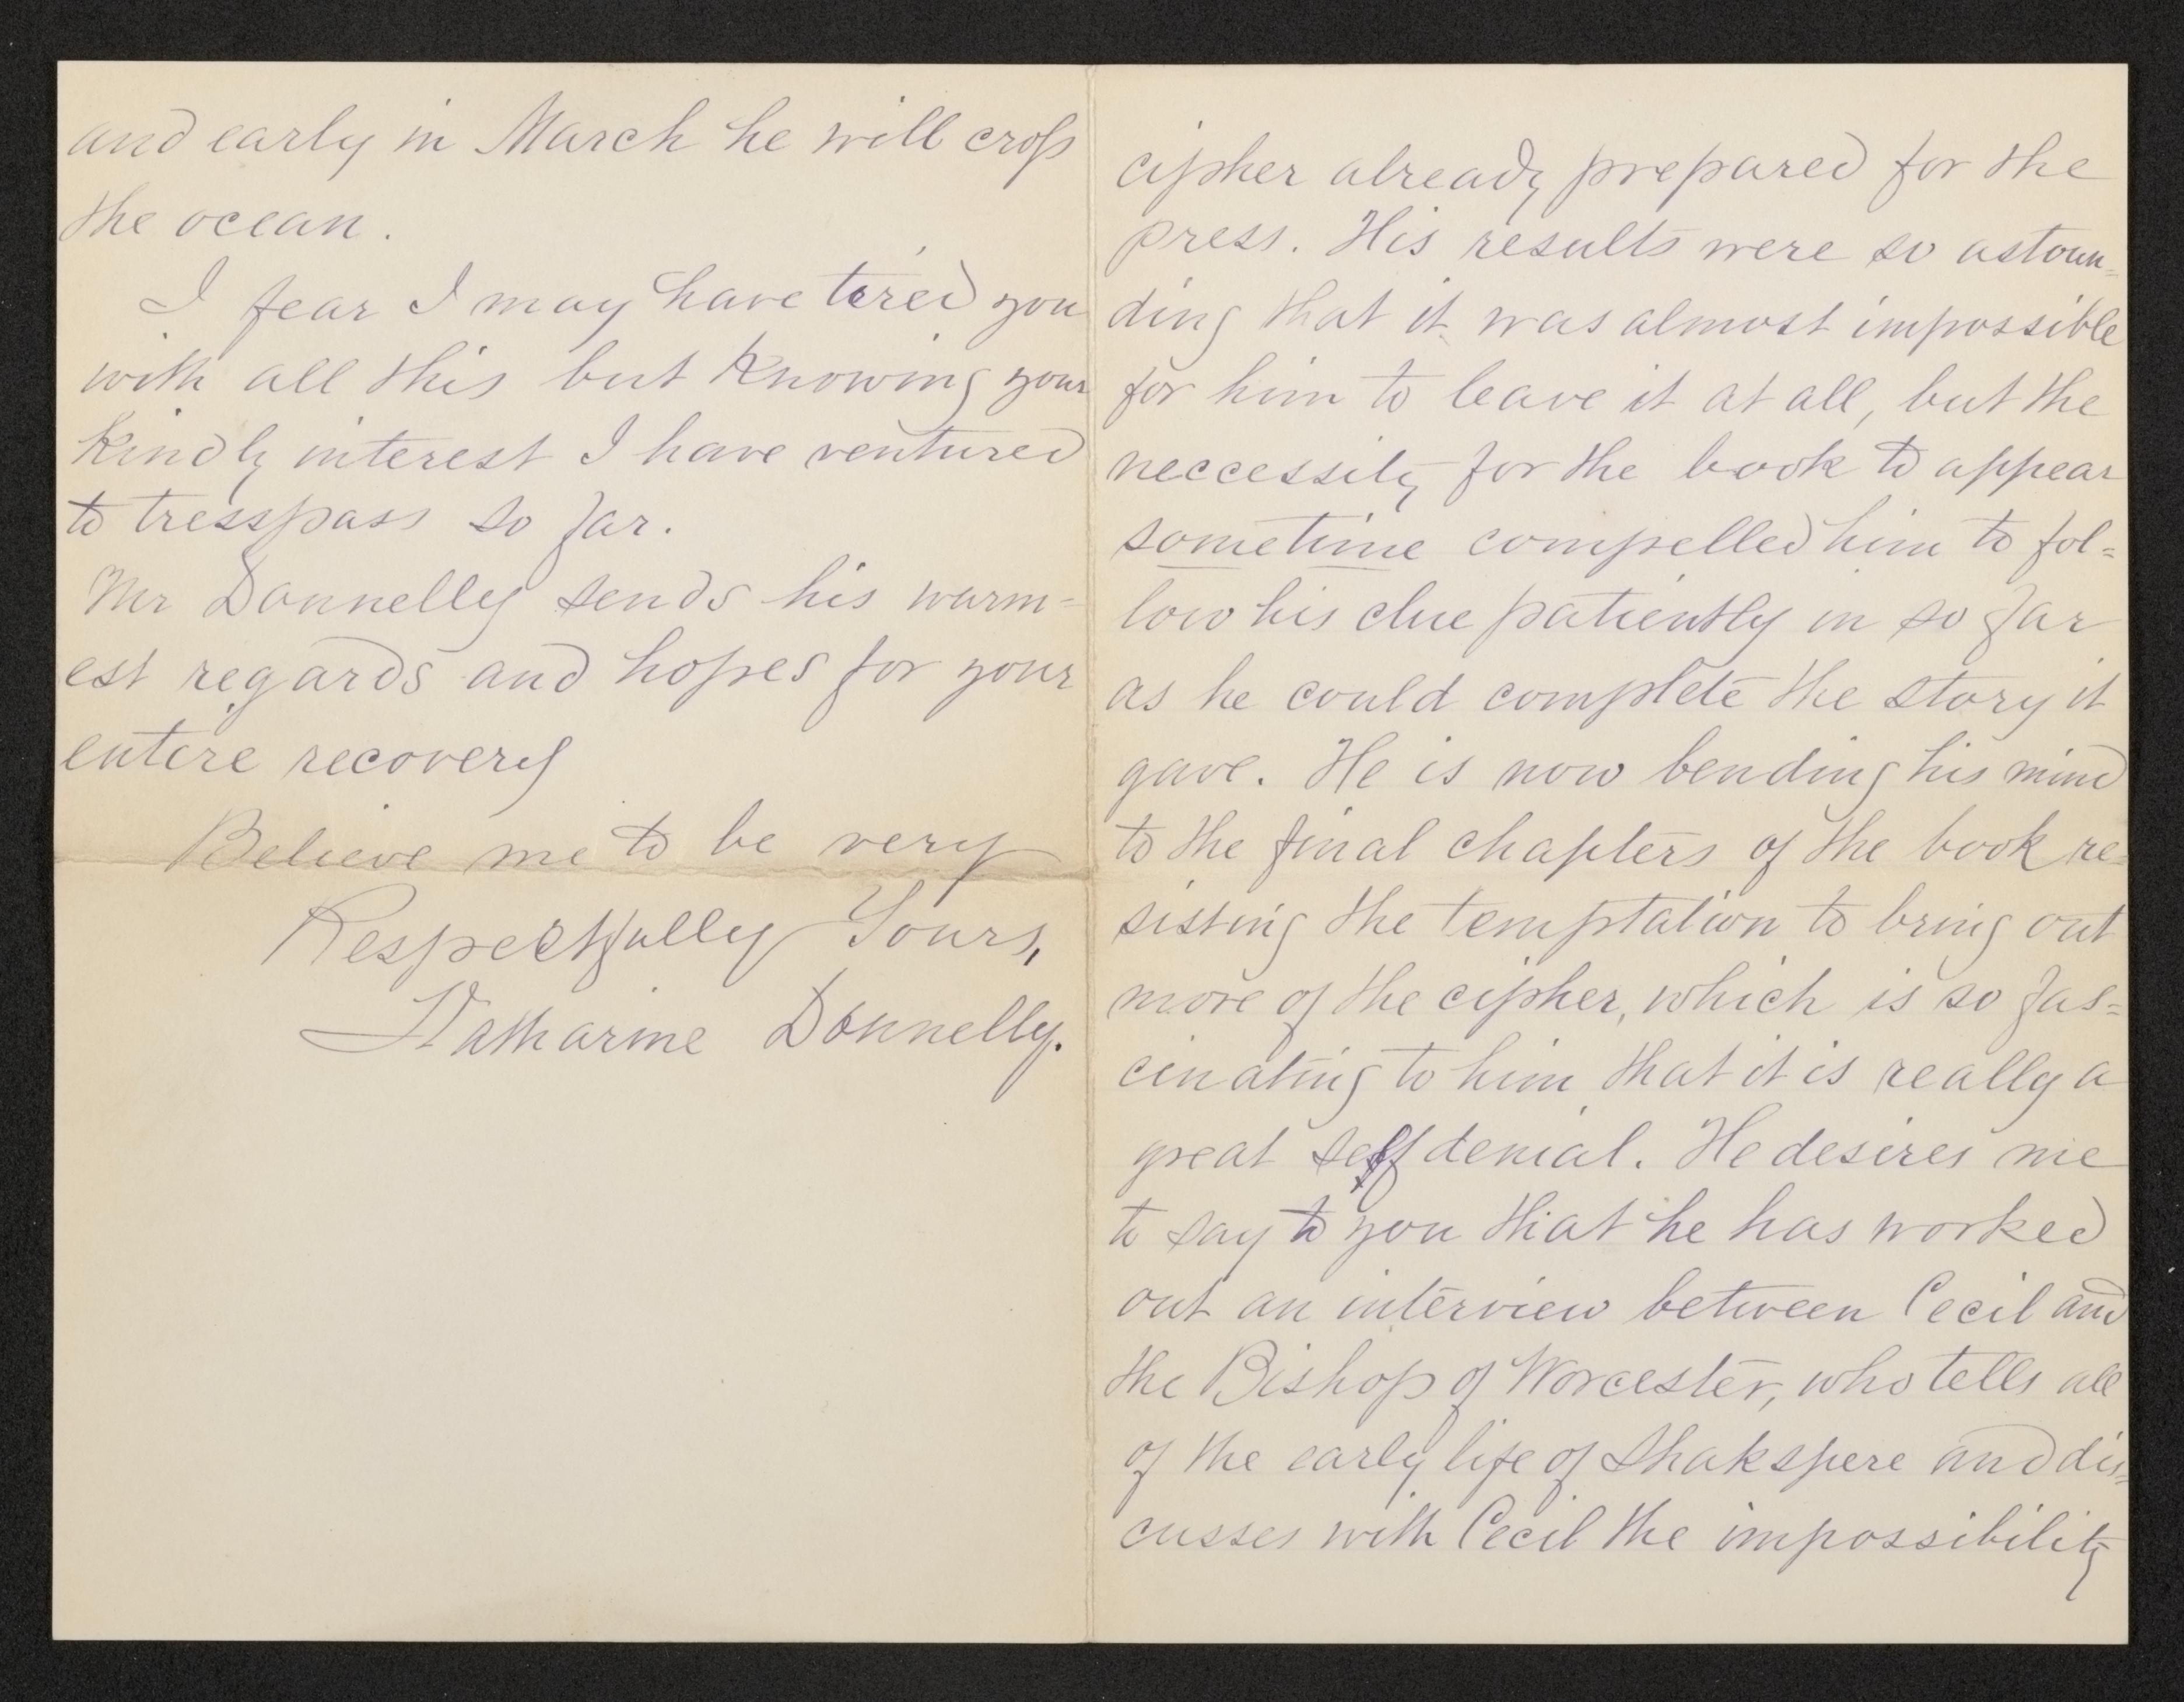 and early in March he will cross
the ocean.
I fear I may have tired you
with all this but knowing your
kindly interest I have ventured
to tresspass so far.
Mr Donnelly sends his warm-
est regards and hopes for your
entire recovery
Believe me to be very
Respectfully Yours,
Katharine Donnelly.
cipher already prepared for the
press. His results were so astoun=
ding that it was almost impossible
for him to leave it at all, but the
neccessity for the book to appear
sometime compelled him to fol=
low his clue patiently in so far
as he could complete the story it
gave. He is now bending his mind
to the final chapters of the book re=
sisting the temptation to bring out
more of the cipher, which is so fas=
cinating to him that it is really a
great self denial. He desires me
to say to you that he has worked
out an interview between Cecil and
the Bishop of Worcester, who tells all
of the early life of Shakspere and dis=
cusses with Cecil the impossibility